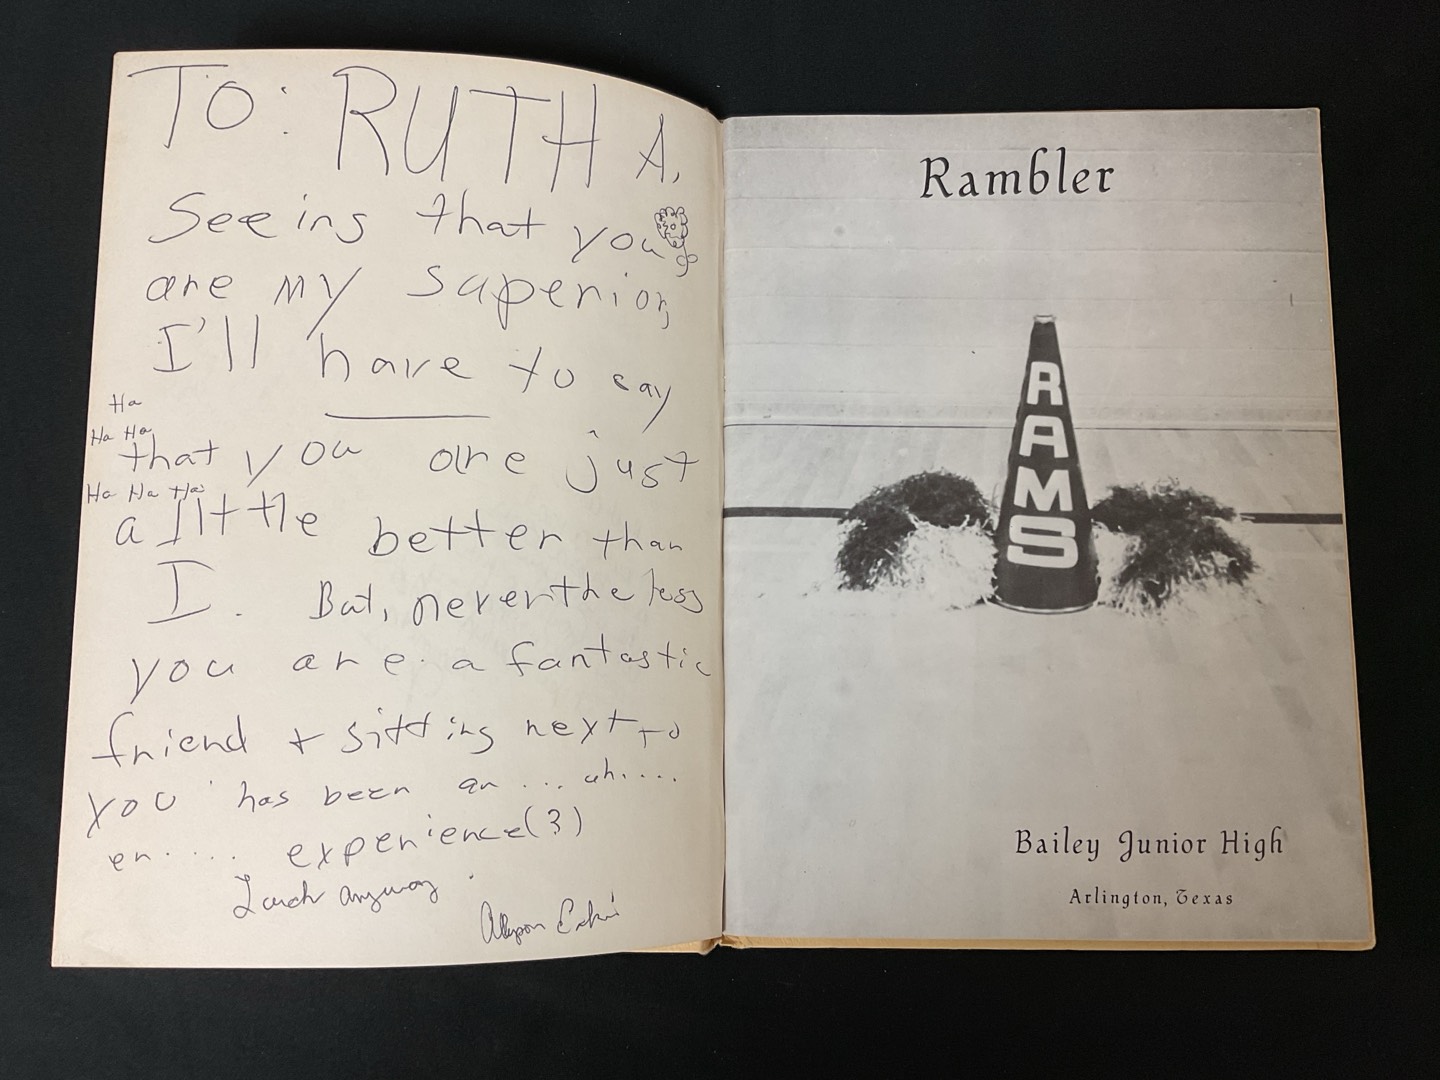 TO: RUTH A,
Seeing that you
are my superior,
I'll have to say
Ha
Ha Ha
that you are just
Ha Ha Ha
a little better than
I. But, nevertheless
you are a fantastic
friend + sitting next to
you has been an ... uh....
er..... experience(?)
anyway.
Rambler
RAMS
Bailey Junior High
Arlington, Texas